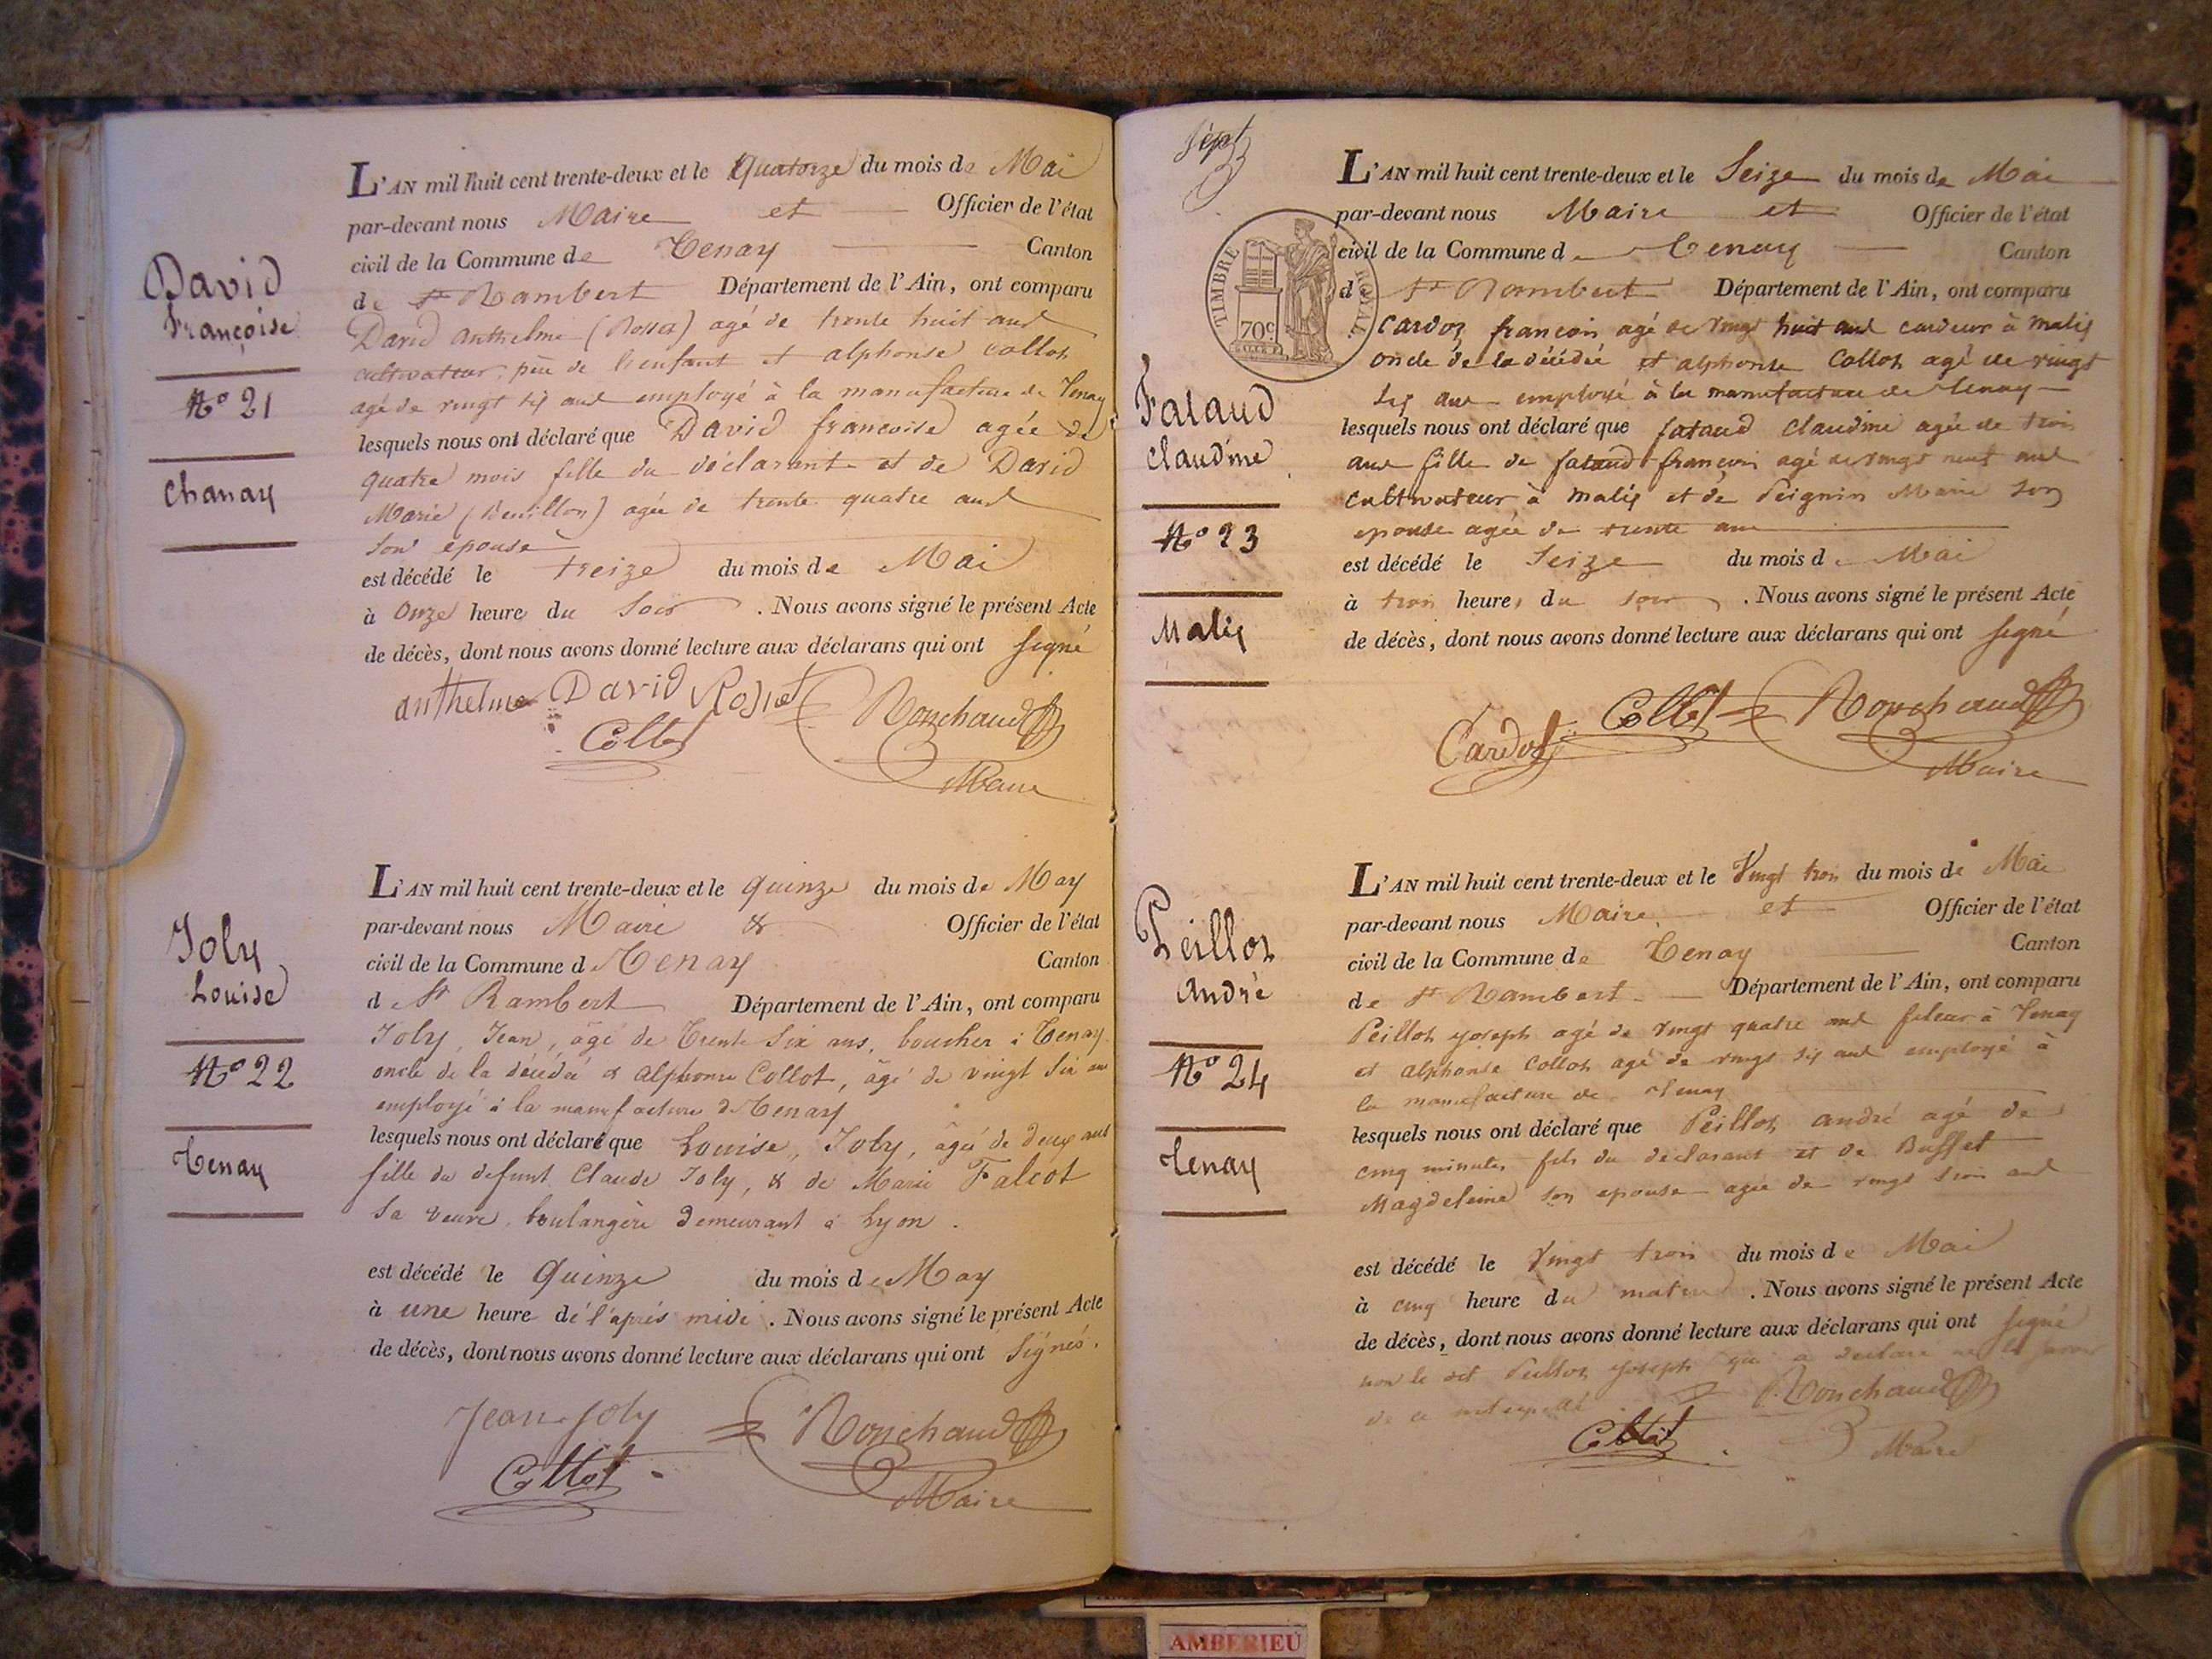 David
Françoise
N° 21
Chanay
L'AN mil huit cent trente-deux et le Quatorze du mois de Mai
par-devant nous Maire et Officier de l'état
civil de la Commune de Tenay Canton
de St Rambert Département de l'Ain, ont comparu
David anthelme (Rosset) agé de trente huit ans
cultivateur, père de l'enfant et alphonse Collot
agé de vingt six ans employé à la manufacture de Tenay
lesquels nous ont déclaré que David francoise agée de
quatre mois fille du déclarant et de David
Marie ( ) agée de trente quatre ans
son épouse
est décédé le treize du mois de Mai
à onze heure du soir . Nous avons signé le présent Acte
de décès, dont nous avons donné lecture aux déclarans qui ont signé
anthelme David Rosset Ronchaud
Collot
Maire
Joly
Louise
N° 22
Tenay
L'AN mil huit cent trente-deux et le quinze du mois de May
par-devant nous Maire & Officier de l'état
civil de la Commune d Tenay Canton
d St Rambert Département de l'Ain, ont comparu
Joly, Jean, âgé de Trente Six ans, boucher à Tenay
oncle de la décédée & Alphonse Collot, âgé de vingt Six ans
employé à la manufacture de Tenay
lesquels nous ont déclaré que Louise, Joly, âgée de deux ans
fille du defunt Claude Joly, & de Marie Falcot
Sa veuve, boulangère demeurant à Lyon.
est décédé le Quinze du mois de May
à une heure de l'après midi . Nous avons signé le présent Acte
de décès, dont nous avons donné lecture aux déclarans qui ont Signés.
Jean Joly Ronchaud
Collot
Maire
Sept
TIMBRE ROYAL
70c
Fataud
Claudine
N° 23
Malix
L'AN mil huit cent trente-deux et le Seize du mois de Mai
par-devant nous Maire et Officier de l'état
civil de la Commune de Tenay Canton
d St Rambert Département de l'Ain, ont comparu
Cardot françois agé de vingt huit ans cardeur à malix
oncle de la décédée et alphonse Collot agé de vingt
six ans employé à la manufacture de Tenay
lesquels nous ont déclaré que fataud Claudine agée de trois
ans fille de fataud françois agé de vingt neuf ans
cultivateur à malix et de Peignin Marie son
epouse agée de trente ans
est décédé le Seize du mois de Mai
à trois heures du soir . Nous avons signé le présent Acte
de décès, dont nous avons donné lecture aux déclarans qui ont signé
Cardot Collot Ronchaud
Maire
Peillot
André
N° 24
Tenay
L'AN mil huit cent trente-deux et le Vingt trois du mois de Mai
par-devant nous Maire et Officier de l'état
civil de la Commune de Tenay Canton
de St Rambert Département de l'Ain, ont comparu
Peillot joseph agé de vingt quatre ans fileur à Tenay
et alphonse Collot agé de vingt six ans employé à
la manufacture de Tenay
lesquels nous ont déclaré que Peillot andré agé de
cinq minutes fils du déclarant et de Buffet
Magdeleine son epouse agée de vingt trois ans
est décédé le Vingt trois du mois de Mai
à cinq heure du matin . Nous avons signé le présent Acte
de décès, dont nous avons donné lecture aux déclarans qui ont signé
non le dit Peillot joseph qui a declaré ne le savoir
de ce interpellé Ronchaud
Collot
Maire
AMBERIEU